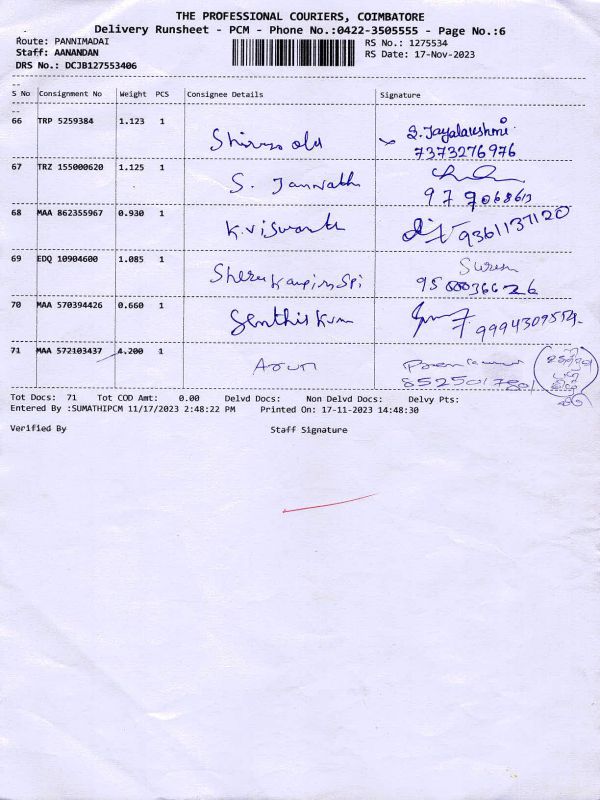 THE PROFESSIONAL COURIERS, COIMBATORE
Delivery Runsheet - PCM - Phone No.:0422-3505555 - Page No.:6
Route: PANNIMADAI
RS No.: 1275534
Staff: AANANDAN
RS Date: 17-Nov-2023
DRS No.: DCJB127553406
S No Consignment No Weight PCS Consignee Details Signature
66 TRP 5259384 1.123 1
S. Jayalakshmi
7373276976
67 TRZ 155000620 1.125 1
S.
68 MAA 862355967 0.930 1
K. Viswanth
9361137120
69 EDQ 10904600 1.085 1
Suresh
70 MAA 570394426 0.660 1
Senthil Kum
9994309554
71 MAA 572103437 4.200 1
Arun
Tot Docs: 71 Tot COD Amt: 0.00 Delvd Docs: Non Delvd Docs: Delvy Pts:
Entered By :SUMATHIPCM 11/17/2023 2:48:22 PM Printed On: 17-11-2023 14:48:30
Verified By Staff Signature